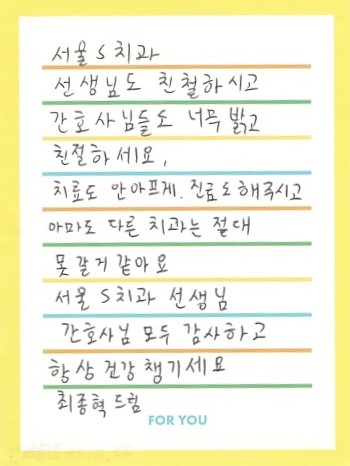 서울 S치과
선생님도 친철하시고
간호사님들도 너무 밝고
친절하세요,
치료도 안아프게. 진료도해주시고
아마도 다른 치과는 절대
못갈거같아요
서울 S치과 선생님
간호사님 모두 감사하고
항상 건강 챙기세요
최종혁 드림
FOR YOU